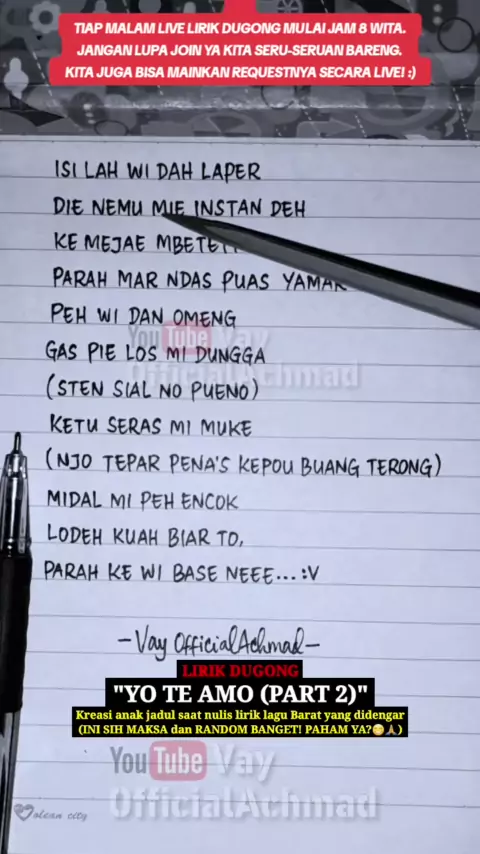 TIAP MALAM LIVE LIRIK DUGONG MULAI JAM 8 WITA.
JANGAN LUPA JOIN YA KITA SERU-SERUAN BARENG.
KITA JUGA BISA MAINKAN REQUESTNYA SECARA LIVE! :)
ISI LAH WI DAH LAPER
DIE NEMU MIE INSTAN DEH
KE MEJAE
PARAH MAR NDAS PUAS YAMAK
PEH WI DAN OMENG
YouTube Vay
OfficialAchmad
GAS PIE LOS MI DUNGGA
(STEN SIAL NO PUENO)
KETU SERAS MI MUKE
(NJO TEPAR PENA'S KEPOU BUANG TERONG)
MIDAL MI PEH ENCOK
LODEH KUAH BIAR TO,
PARAH KE WI BASE NEEE...:V
-Vay OfficialAchmad-
LIRIK DUGONG
"YO TE AMO (PART 2)"
Kreasi anak jadul saat nulis lirik lagu Barat yang didengar
(INI SIH MAKSA dan RANDOM BANGET! PAHAM YA?😁🙏)
YouTube Vay
OfficialAchmad
olean city